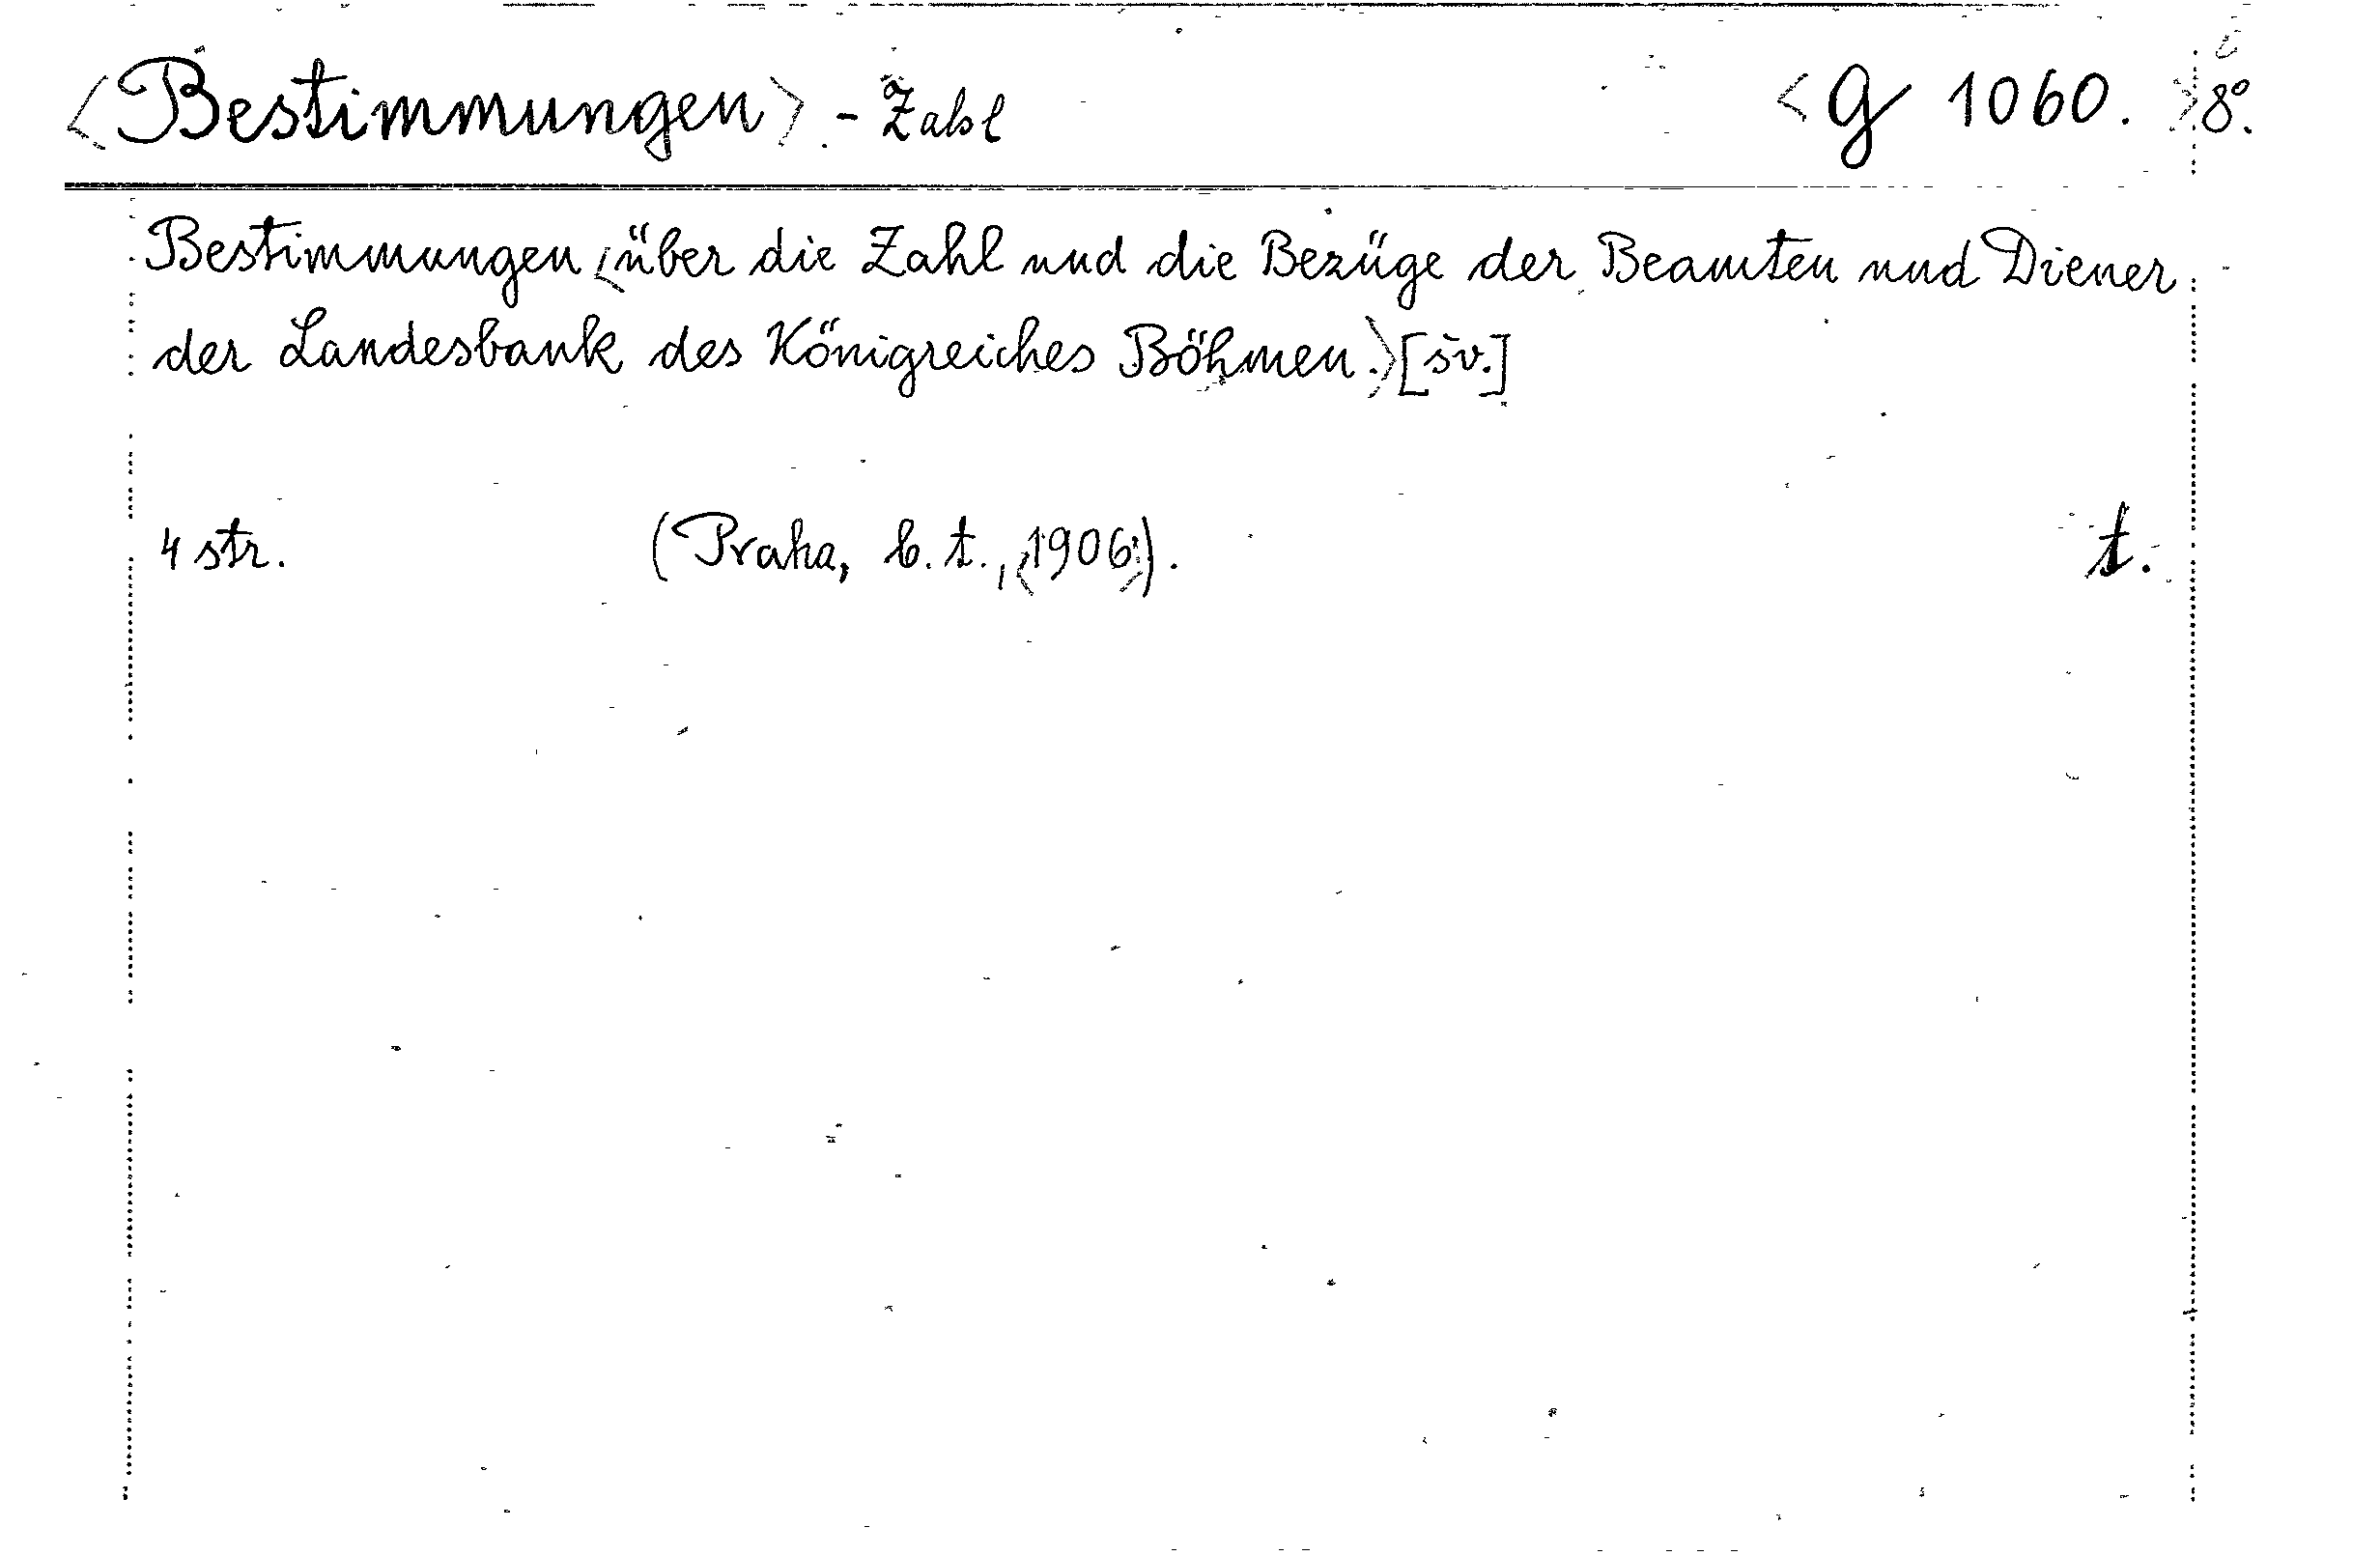 <Bestimmungen> - Zahl <G 1060.> 8º.
Bestimmungen <über die Zahl und die Bezüge der Beamten und Diener
der Landesbank des Königreiches Böhmen.> [šv.]
4 str. (Praha, b. t., <1906>). t.